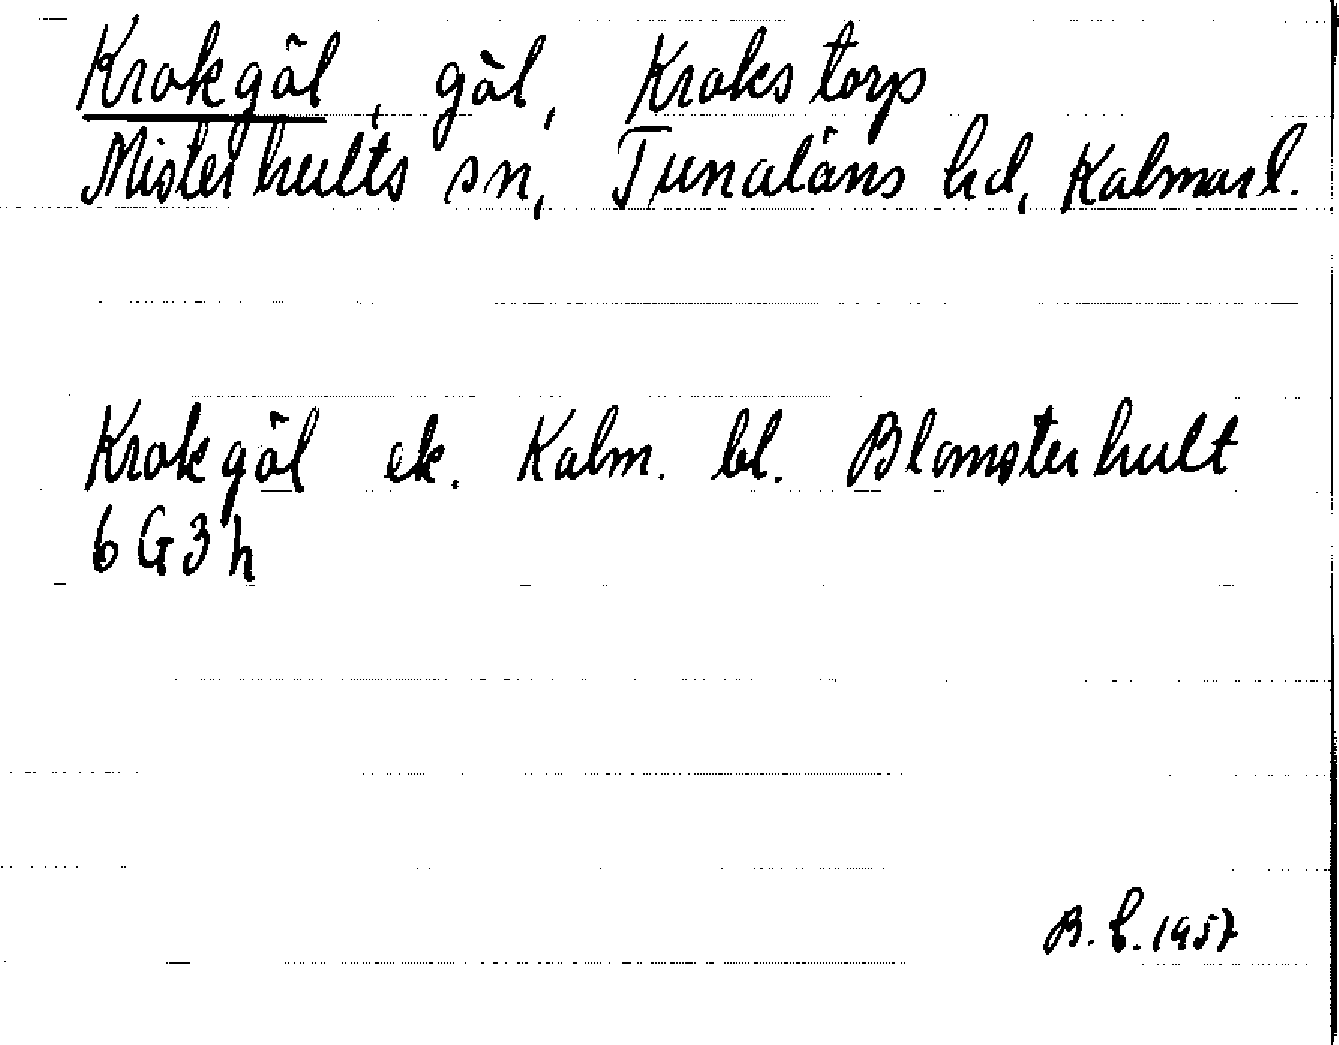 Krokgöl, göl, Krokstorp
Misterhults sn, Tunaläns hd, Kalmar l.
Krokgöl ek. Kalm. bl. Blomsterhult
6G3h
B. L. 1957